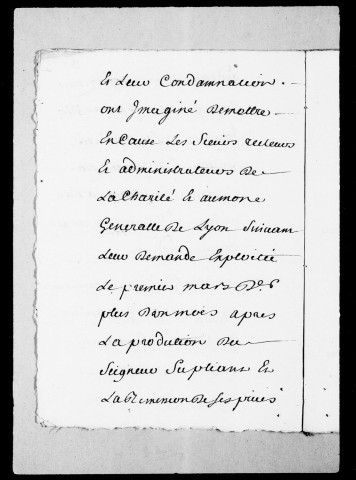 Et Leur Condamnation.
ont Jmaginé De mettre
En Cause Les Sieurs recteurs
Et administrateurs De
La Charité Et aumone
Generalle De Lyon Suiuant
Leur Demande Exploitée
Le premier mars D.
plus D'un mois apres
La production Du
Seigneur Supliant Et
La De Ses